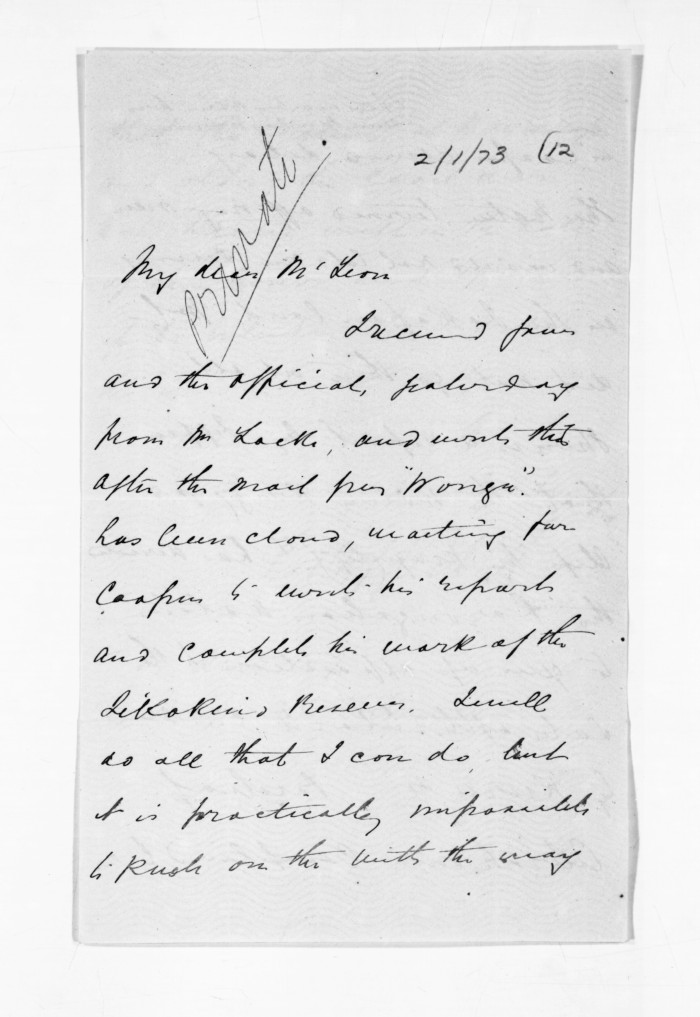 2/1/73 (12
Private
My dear McLean
I received yours
and the official, yesterday
from Mr Locke, and write this
after the mail per "Wonga".
has been closed, waiting for
Cooper to write his report
and complete his work of the
Reserves. I will
do all that I can do, but
it is practically impossible
to rush on the with the way